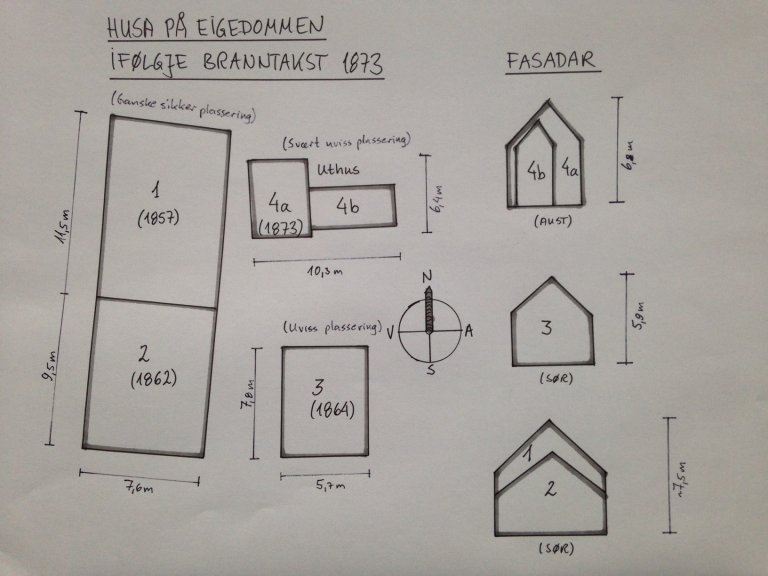 HUSA PÅ EIGEDOMMEN
IFØLGJE BRANNTAKST 1873
(Ganske sikker plassering)
1
(1857)
11,5m
2
(1862)
9,5m
7,6m
(Svært uviss plassering)
Uthus
4a
(1873)
4b
6,4m
10,3m
N
V
A
S
(Uviss plassering)
3
(1864)
7,8m
5,7m
FASADAR
4b
4a
6,8m
(AUST)
3
5,9m
(SØR)
1
2
~7,5m
(SØR)